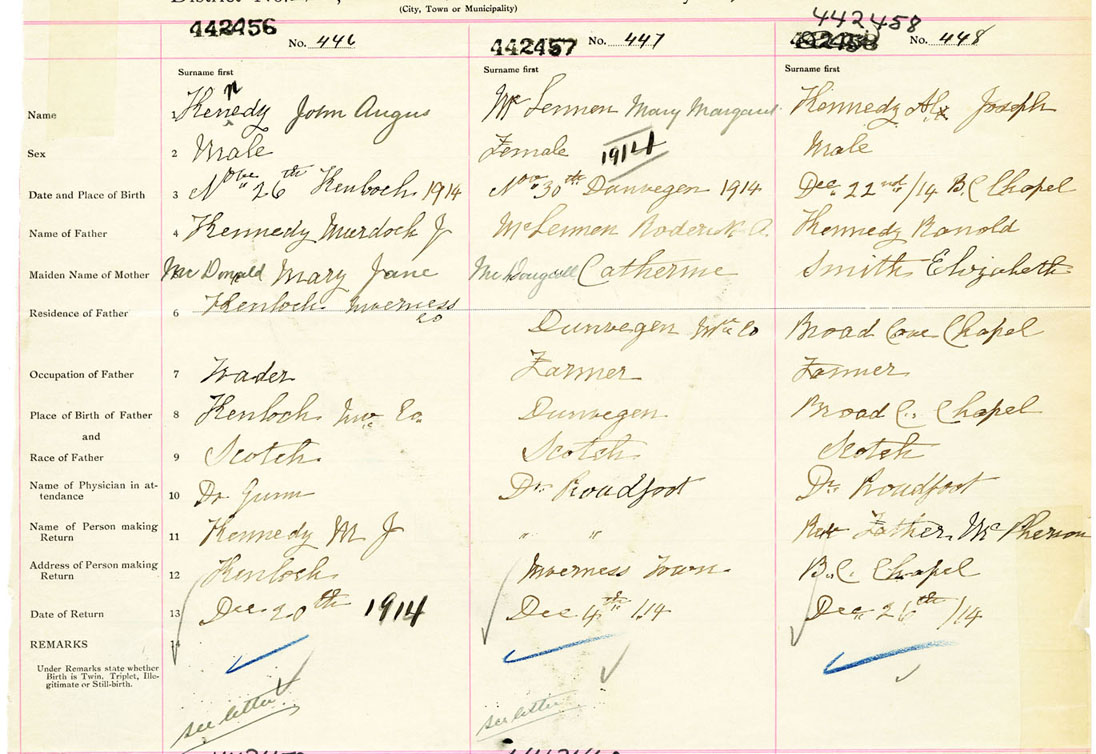 District No.
(City, Town or Municipality)
442456 No. 446
442457 No. 447
442458
442458 No. 448
Surname first Surname first Surname first
Name Kenedy n John Angus Mc Lennon Mary Margaret Kennedy Alx Joseph
Sex 2 Male Female 1914 Male
Date and Place of Birth 3 Nov 26th Kenloch 1914 Nov 30th Dunvegen 1914 Dec 22nd/14 B.C Chapel
Name of Father 4 Kennedy Murdock J McLennon Roderick A. Kennedy Ranold
Maiden Name of Mother Mac Donald Mary Jane McDougall Catherine Smith Elizabeth
Residence of Father 6 Kenloch Inverness Co Dunvegen Co Broad Cove Chapel
Occupation of Father 7 Trader Farmer Farmer
Place of Birth of Father 8 Kenloch Inv Co. Dunvegen Broad C. Chapel
and
Race of Father 9 Scotch Scotch Scotch
Name of Physician in at-
tendance 10 Dr Gunn Dr Proudfoot Dr. Proudfoot
Name of Person making
Return 11 Kennedy M J " " Rev Father McPherson
Address of Person making
Return 12 Kenloch Inverness Town B.C. Chapel
Date of Return 13 Dec 20th 1914 Dec 4th 14 Dec 26th/14
REMARKS 14
Under Remarks state whether
Birth is Twin, Triplet, Ille-
gitimate or Still-birth.
see letter see letter